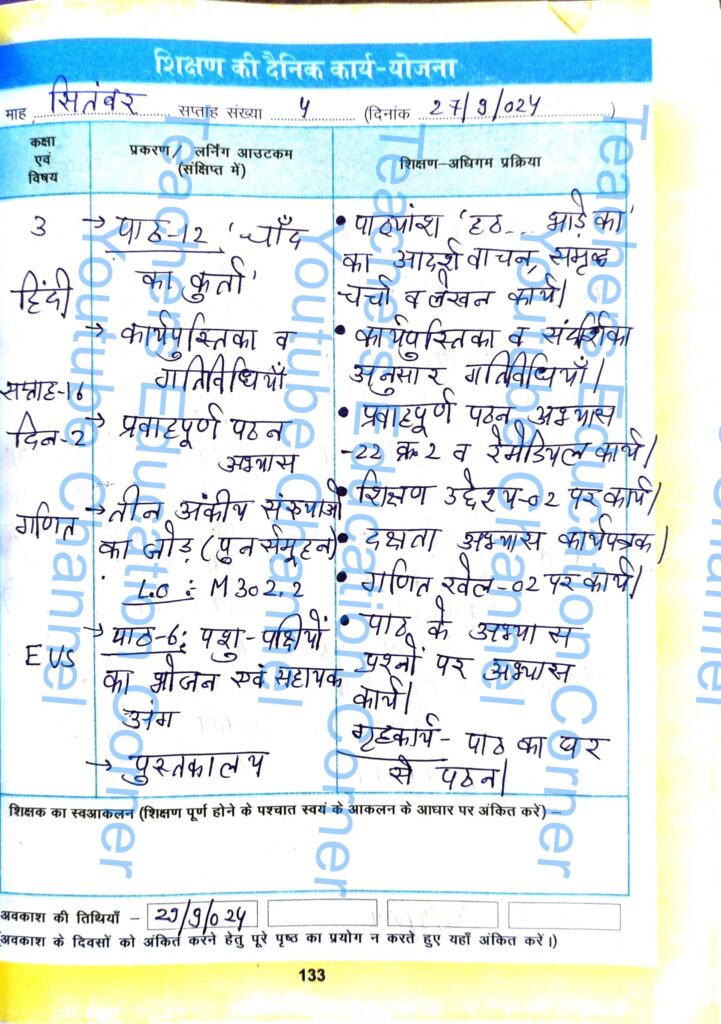 शिक्षण की दैनिक कार्य-योजना
माह सितंबर सप्ताह संख्या 4 (दिनांक 27/9/024)
कक्षा एवं विषय
प्रकरण / लर्निंग आउटकम (संक्षिप्त में)
शिक्षण-अधिगम प्रक्रिया
3
हिंदी
सप्ताह-16
दिन-2
→ पाठ-12 'चाँद
का कुर्ता'
→ कार्यपुस्तिका व
गतिविधियाँ
→ प्रवाहपूर्ण पठन
अभ्यास
• पाठ्यांश 'हठ... भाड़े का'
का आदर्श वाचन, समृद्ध
चर्चा व लेखन कार्य।
• कार्यपुस्तिका व संदर्शिका
अनुसार गतिविधियाँ।
• प्रवाहपूर्ण पठन अभ्यास
-22 क्र 2 व रेमेडियल कार्य।
गणित
→ तीन अंकीय संख्याओं
का जोड़ (पुनर्समूहन)
L.O : M302.2
• शिक्षण उद्देश्य-02 पर कार्य।
• दक्षता अभ्यास कार्यपत्रक।
• गणित खेल-02 पर कार्य।
EVS
→ पाठ-6: पशु-पक्षियों
का भोजन एवं सहायक
अंग
→ पुस्तकालय
• पाठ के अभ्यास
प्रश्नों पर अभ्यास
कार्य।
गृहकार्य- पाठ का घर
से पठन।
शिक्षक का स्वआकलन (शिक्षण पूर्ण होने के पश्चात स्वयं के आकलन के आधार पर अंकित करें) –
अवकाश की तिथियाँ – 29/9/024
(अवकाश के दिवसों को अंकित करने हेतु पूरे पृष्ठ का प्रयोग न करते हुए यहाँ अंकित करें।)
133
Teachers Education Corner
Youtube Channel
Teachers Education Corner
Youtube Channel
Teachers Education Corner